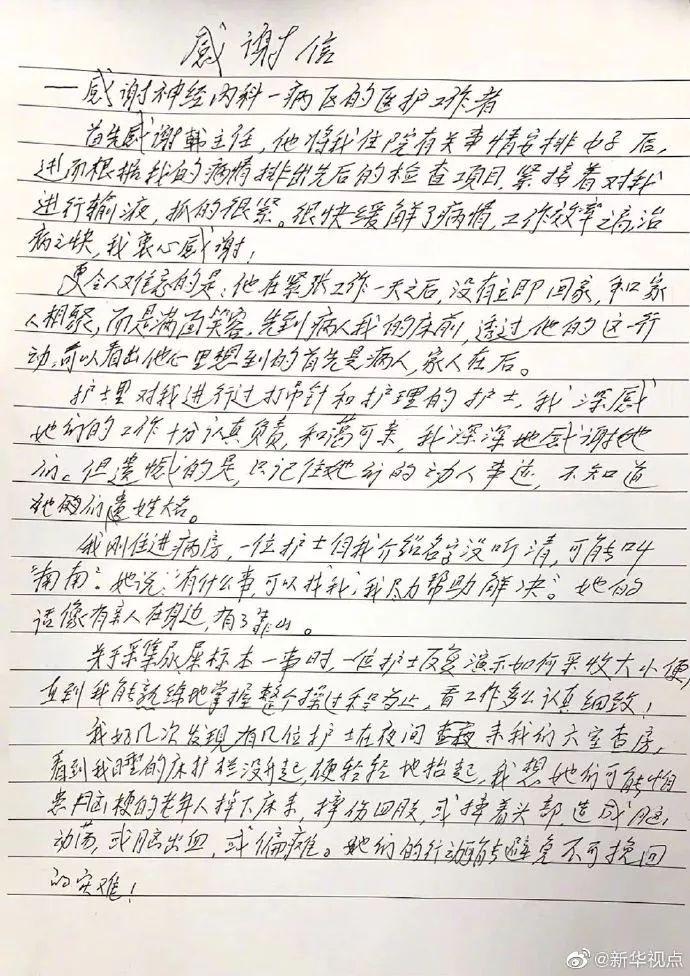 感谢信
——感谢神经内科一病区的医护工作者
首先感谢韩主任，他将我住院有关事情安排好后，
进而根据我的病情排出先后的检查项目，紧接着对我
进行输液，抓的很紧。很快缓解了病情，工作效率之高，治
病之快，我衷心感谢！
更令人难忘的是：他在紧张工作一天之后，没有立即回家，和家
人相聚，而是满面笑容，先到病人我的床前，透过他的这一行
动，可以看出他心里想到的首先是病人，家人在后。
护士里对我进行过打吊针和护理的护士，我深感
她们的工作十分认真负责，和蔼可亲，我深深地感谢她
们。但遗憾的是，只记住她们的动人事迹，不知道
她们姓大名。
我刚住进病房，一位护士但我介绍名字没听清，可能叫
“南南”。她说：“有什么事，可以找我，我尽力帮助解决”。她的
话像有亲人在身边，有了靠山。
关于采集尿屎标本一事时，一位护士反复演示如何采收大小便，
直到我能熟练地掌握整个操过程为止，看工作多么认真细致！
我好几次发现有几位护士在夜间来我们六室查房，
看到我睡的床护栏没升起，便轻轻地抬起，我想她们可能怕
患脑梗的老年人掉下床来，摔伤四肢，或摔着头部，造成脑
动荡，或脑出血，或偏瘫。她们的行动能避免不可挽回
的灾难！
@新华视点